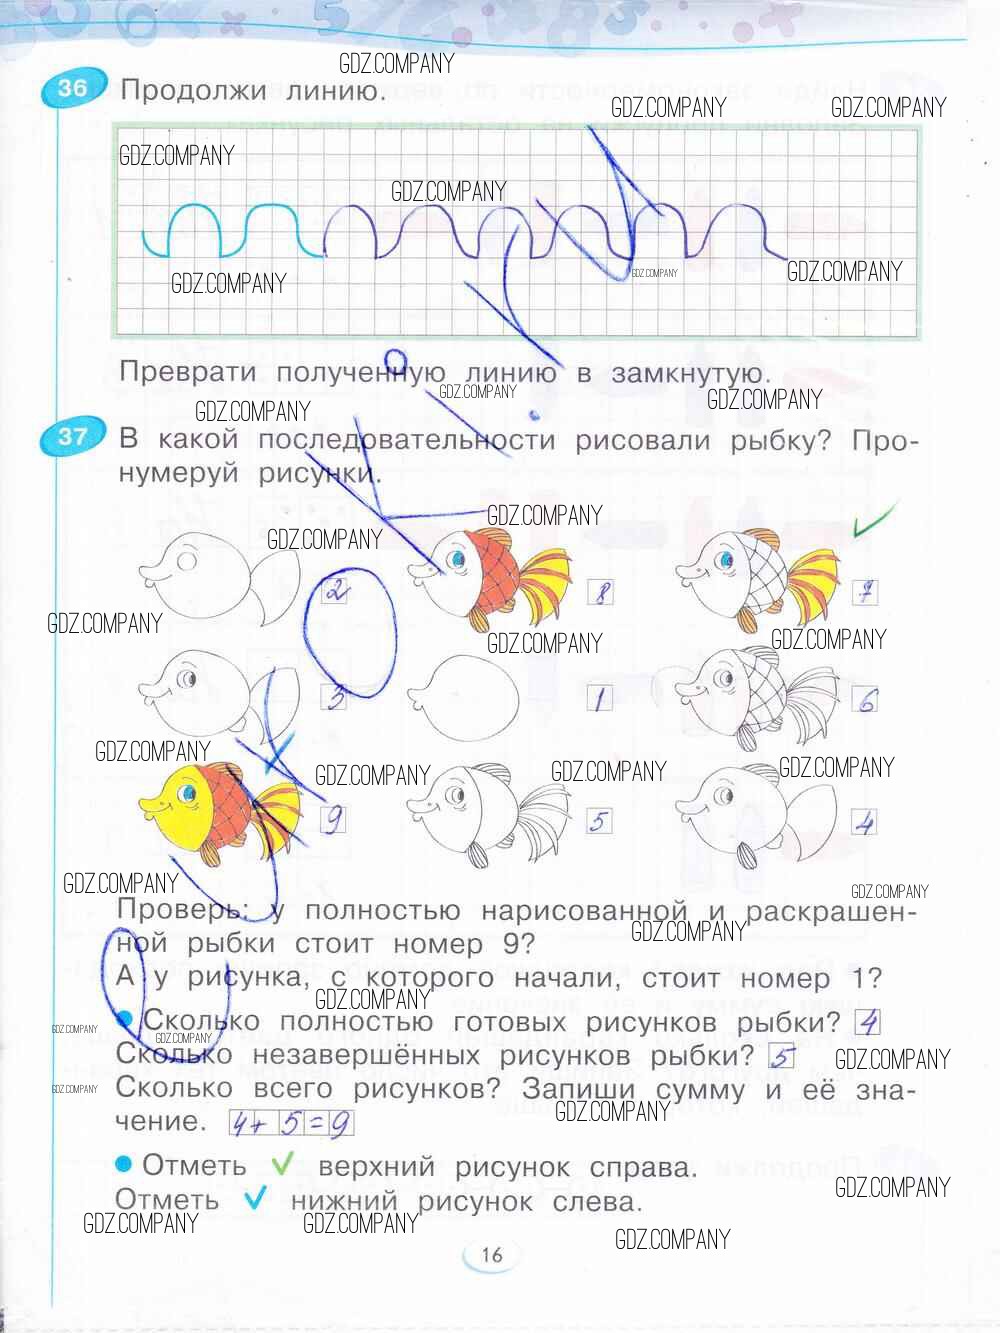 GDZ.COMPANY
36 Продолжи линию.
GDZ.COMPANY GDZ.COMPANY
GDZ.COMPANY
GDZ.COMPANY
GDZ.COMPANY GDZ.COMPANY GDZ.COMPANY
Преврати полученную линию в замкнутую.
GDZ.COMPANY GDZ.COMPANY GDZ.COMPANY
37 В какой последовательности рисовали рыбку? Про-
нумеруй рисунки.
GDZ.COMPANY GDZ.COMPANY
2 8 7
GDZ.COMPANY GDZ.COMPANY GDZ.COMPANY
3 1 6
GDZ.COMPANY GDZ.COMPANY GDZ.COMPANY GDZ.COMPANY
9 5 4
GDZ.COMPANY GDZ.COMPANY
Проверь: у полностью нарисованной и раскрашен-
GDZ.COMPANY
ной рыбки стоит номер 9?
А у рисунка, с которого начали, стоит номер 1?
GDZ.COMPANY
Сколько полностью готовых рисунков рыбки? 4
GDZ.COMPANY GDZ.COMPANY
Сколько незавершённых рисунков рыбки? 5
GDZ.COMPANY
Сколько всего рисунков? Запиши сумму и её зна-
GDZ.COMPANY
GDZ.COMPANY
чение. 4+5=9
Отметь ✓ верхний рисунок справа.
GDZ.COMPANY
Отметь ✓ нижний рисунок слева.
GDZ.COMPANY GDZ.COMPANY GDZ.COMPANY
16